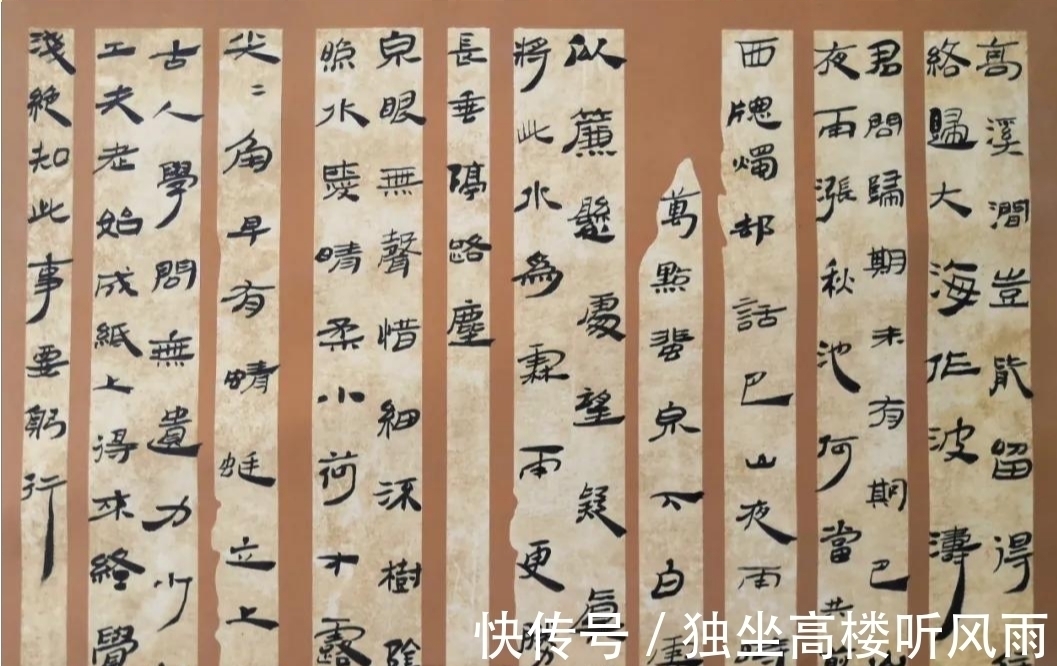 高溪澗豈能留得
終歸大海作波濤
君問歸期未有期巴
夜雨漲秋池何當共
西牕燭却話巴山夜雨時
萬點蜚泉下白雲
似簾懸處望疑真
將此水為霖雨更勝
長垂隔路塵
泉眼無聲惜細流樹陰
照水愛晴柔小荷才露
尖〻角早有蜻蜓立上
古人學問無遺力少
工夫老始成紙上得來終覺
淺絕知此事要躬行
快传号 / 独坐高楼听风雨